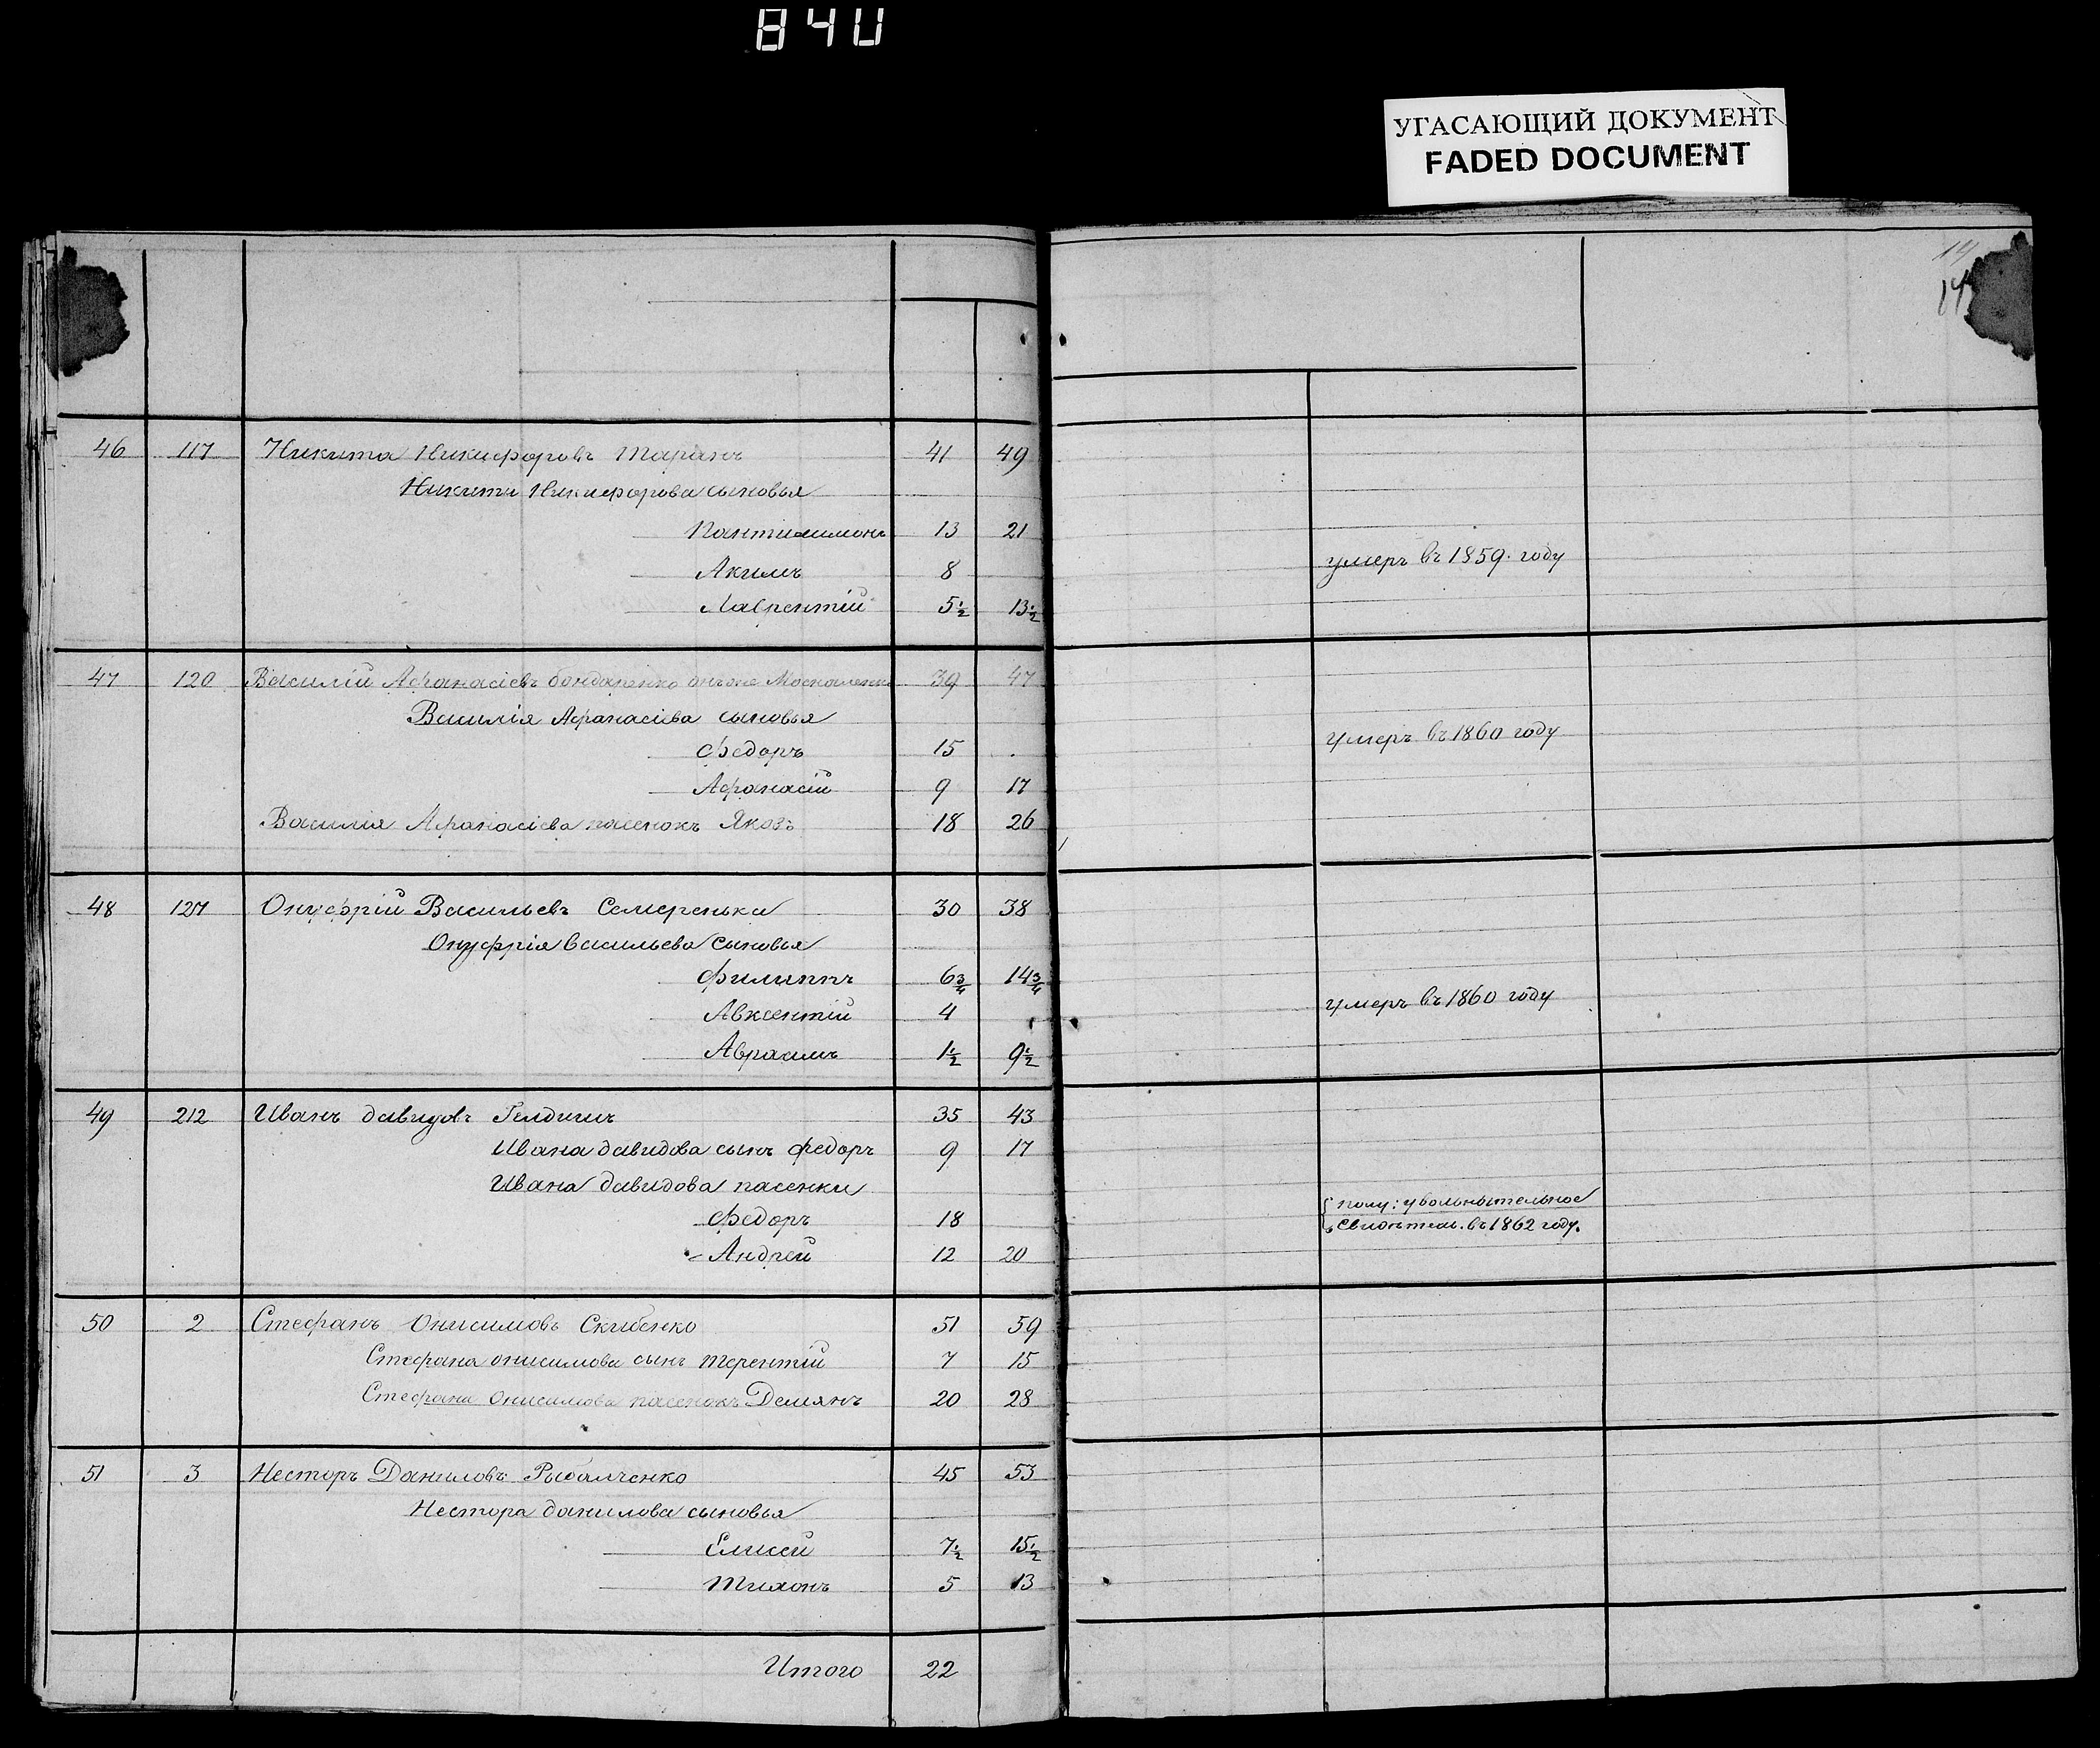 840
УГАСАЮЩИЙ ДОКУМЕНТ
FADED DOCUMENT
14
14
46 117 Никита Никифоровъ Таранъ 41 49
Никиты Никифорова сыновья
Пантилимонъ 13 21
Акимъ 8 умеръ въ 1859 году
Лаврентій 5½ 13½
47 120 Василій Афанасіевъ бондаренко онъ же Москаленко 39 47
Василія Афанасіева сыновья
Федоръ 15 умеръ въ 1860 году
Афанасій 9 17
Василія Афанасіева пасенокъ Яковъ 18 26
48 127 Онуфрій Васильевъ Семеренька 30 38
Онуфрія Васильева сыновья
Филиппъ 6¾ 14¾
Авксентій 4 умеръ въ 1860 году
Авраамъ 1½ 9½
49 212 Иванъ давидовъ 35 43
Ивана давидова сынъ федоръ 9 17
Ивана давидова пасенки
Федоръ 18 полу: увольнытельное
свидѣтель. въ 1862 году.
Андрей 12 20
50 2 Стефанъ Онисимовъ Скибенко 51 59
Стефана онисимова сынъ терентій 7 15
Стефана Онисимова пасенокъ Демянъ 20 28
51 3 Несторъ Даниловъ Рыбалченко 45 53
Нестора данилова сыновья
Елисей 7½ 15½
Тихонъ 5 13
Итого 22